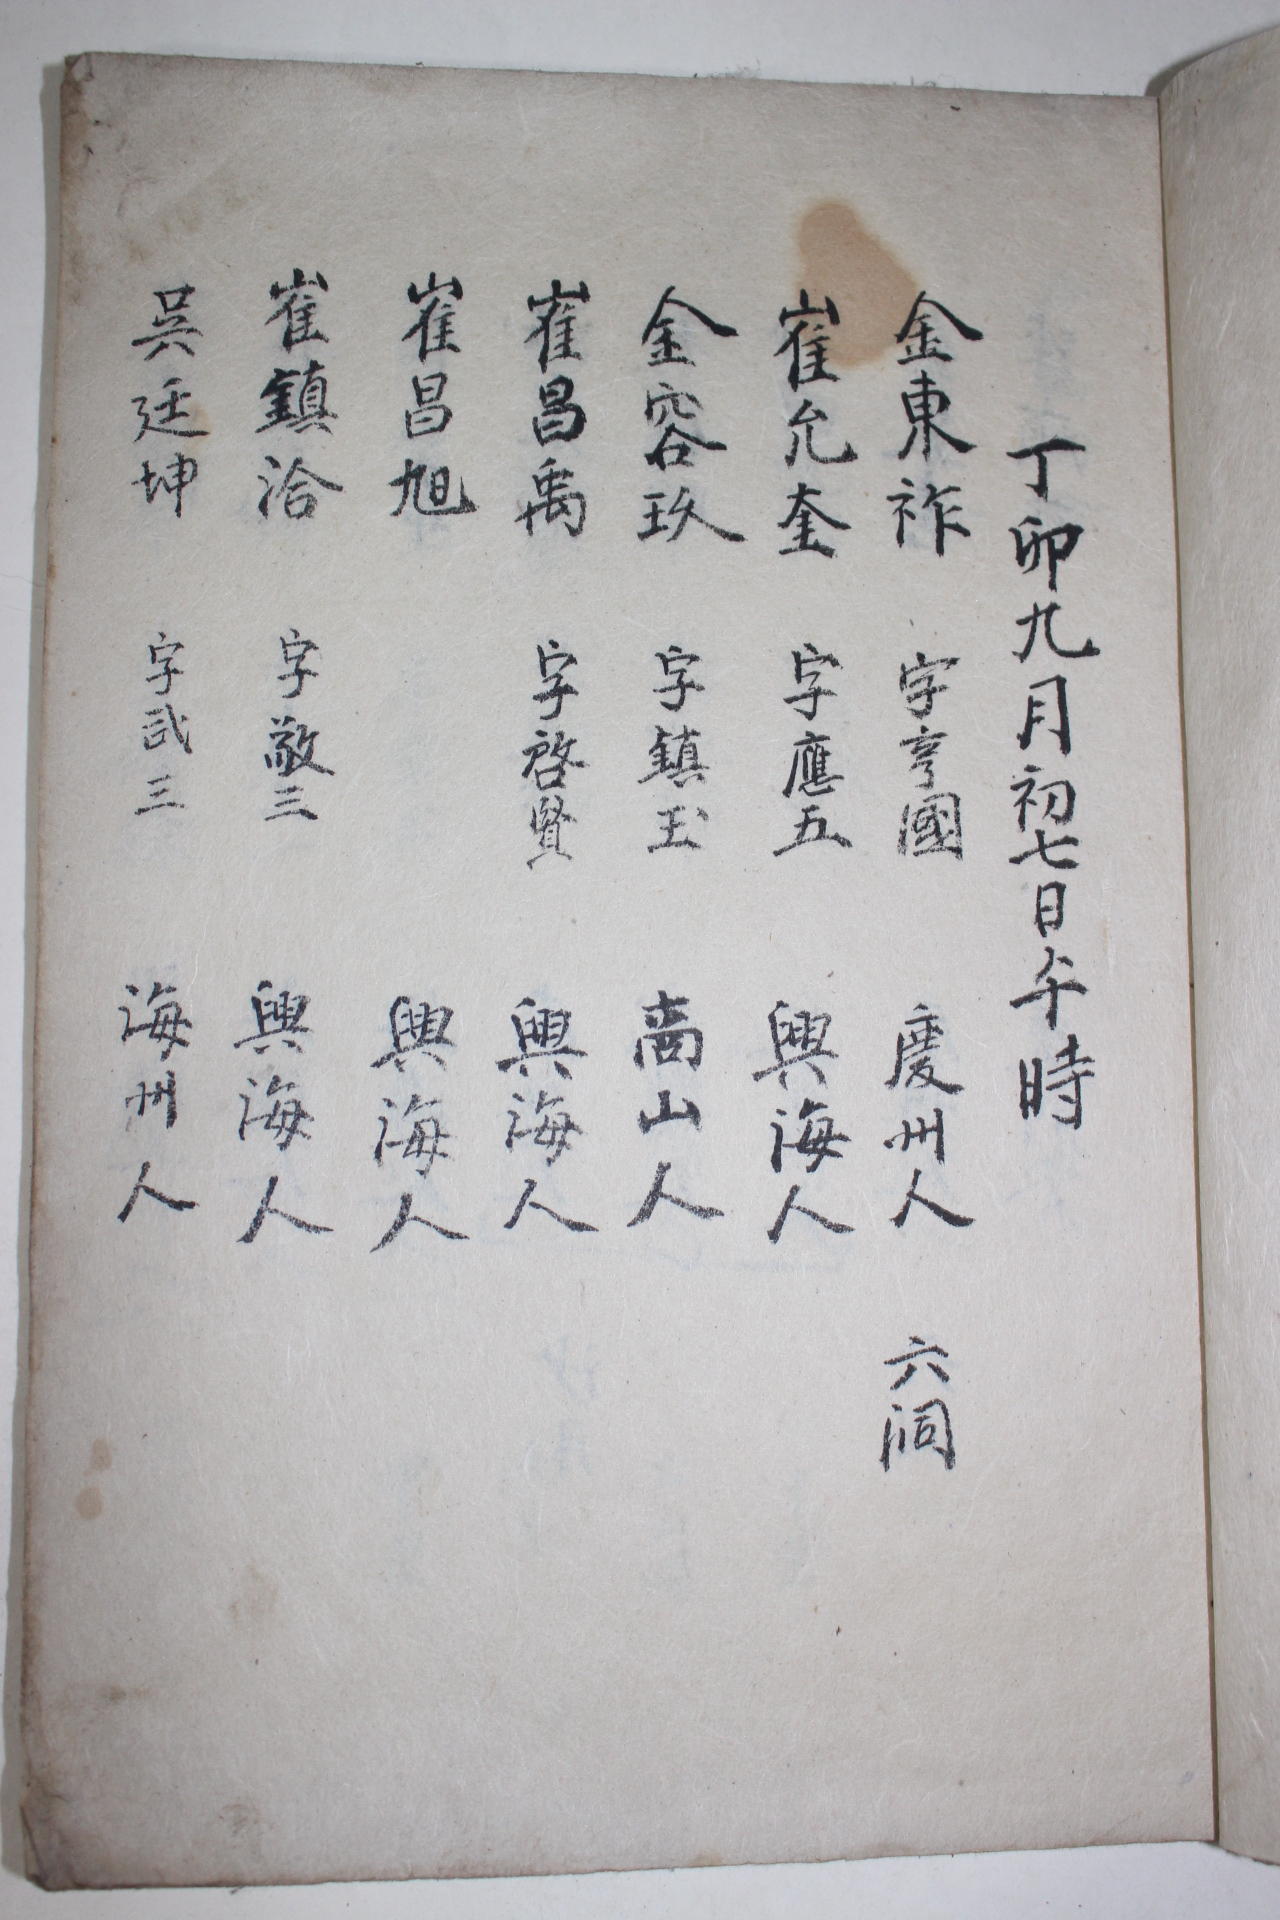 丁卯九月初七日午時
金東祚 字亨國 慶州人 六洞
崔允奎 字應五 興海人
金容玖 字鎮玉 啇山人
崔昌禹 字啓賢 興海人
崔昌旭 興海人
崔鎮洽 字敬三 興海人
吳廷坤 字貳三 海州人